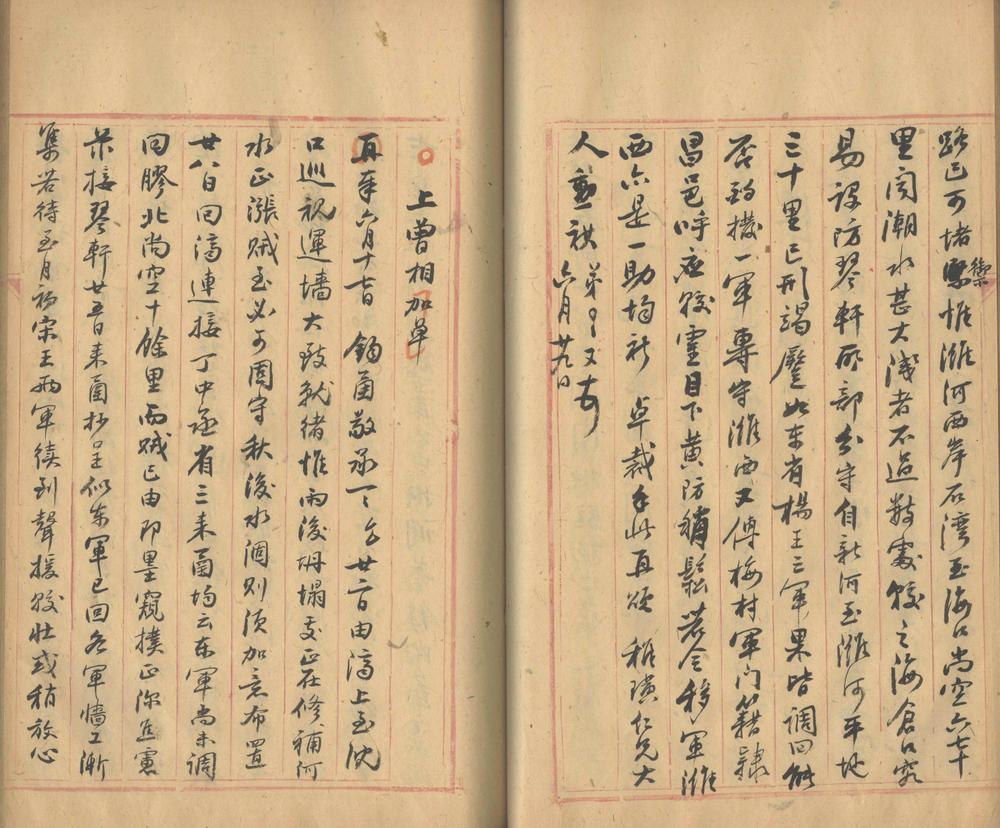 路已可堵禦惟濰河西岸石灣至海口尚空六七十
里閱潮水甚大淺者不過數處較之海倉口究
易設防琴軒所部分守自新河至濰河平地
三十里已形竭蹷如東有楊王三軍果皆調回能
否酌撥一軍專守濰西又傅梅村軍門籍隸
昌邑呼應較靈目下黃防稍鬆若令移軍濰
西亦是一助均祈卓裁手此再頌稚璜仁兄大
人勳祺 弟 又頓
六月廿九日
上曾相加單
再奉六月十七日鈞函敬承一一方廿二日由濟上至沈
口巡視運墻大致就緒惟雨後坍塌處正在修補河
水正漲賊至必可固守秋後水涸則須加意布置
廿八日回濟連接丁中丞省三來函均云東軍尚未調
回膠北尚空十餘里而賊已由即墨窺撲正深焦慮
茲接琴軒廿五日來函抄呈似東軍已回各軍墻工漸
集若待至月初宋王兩軍續到聲援較壯或稍放心